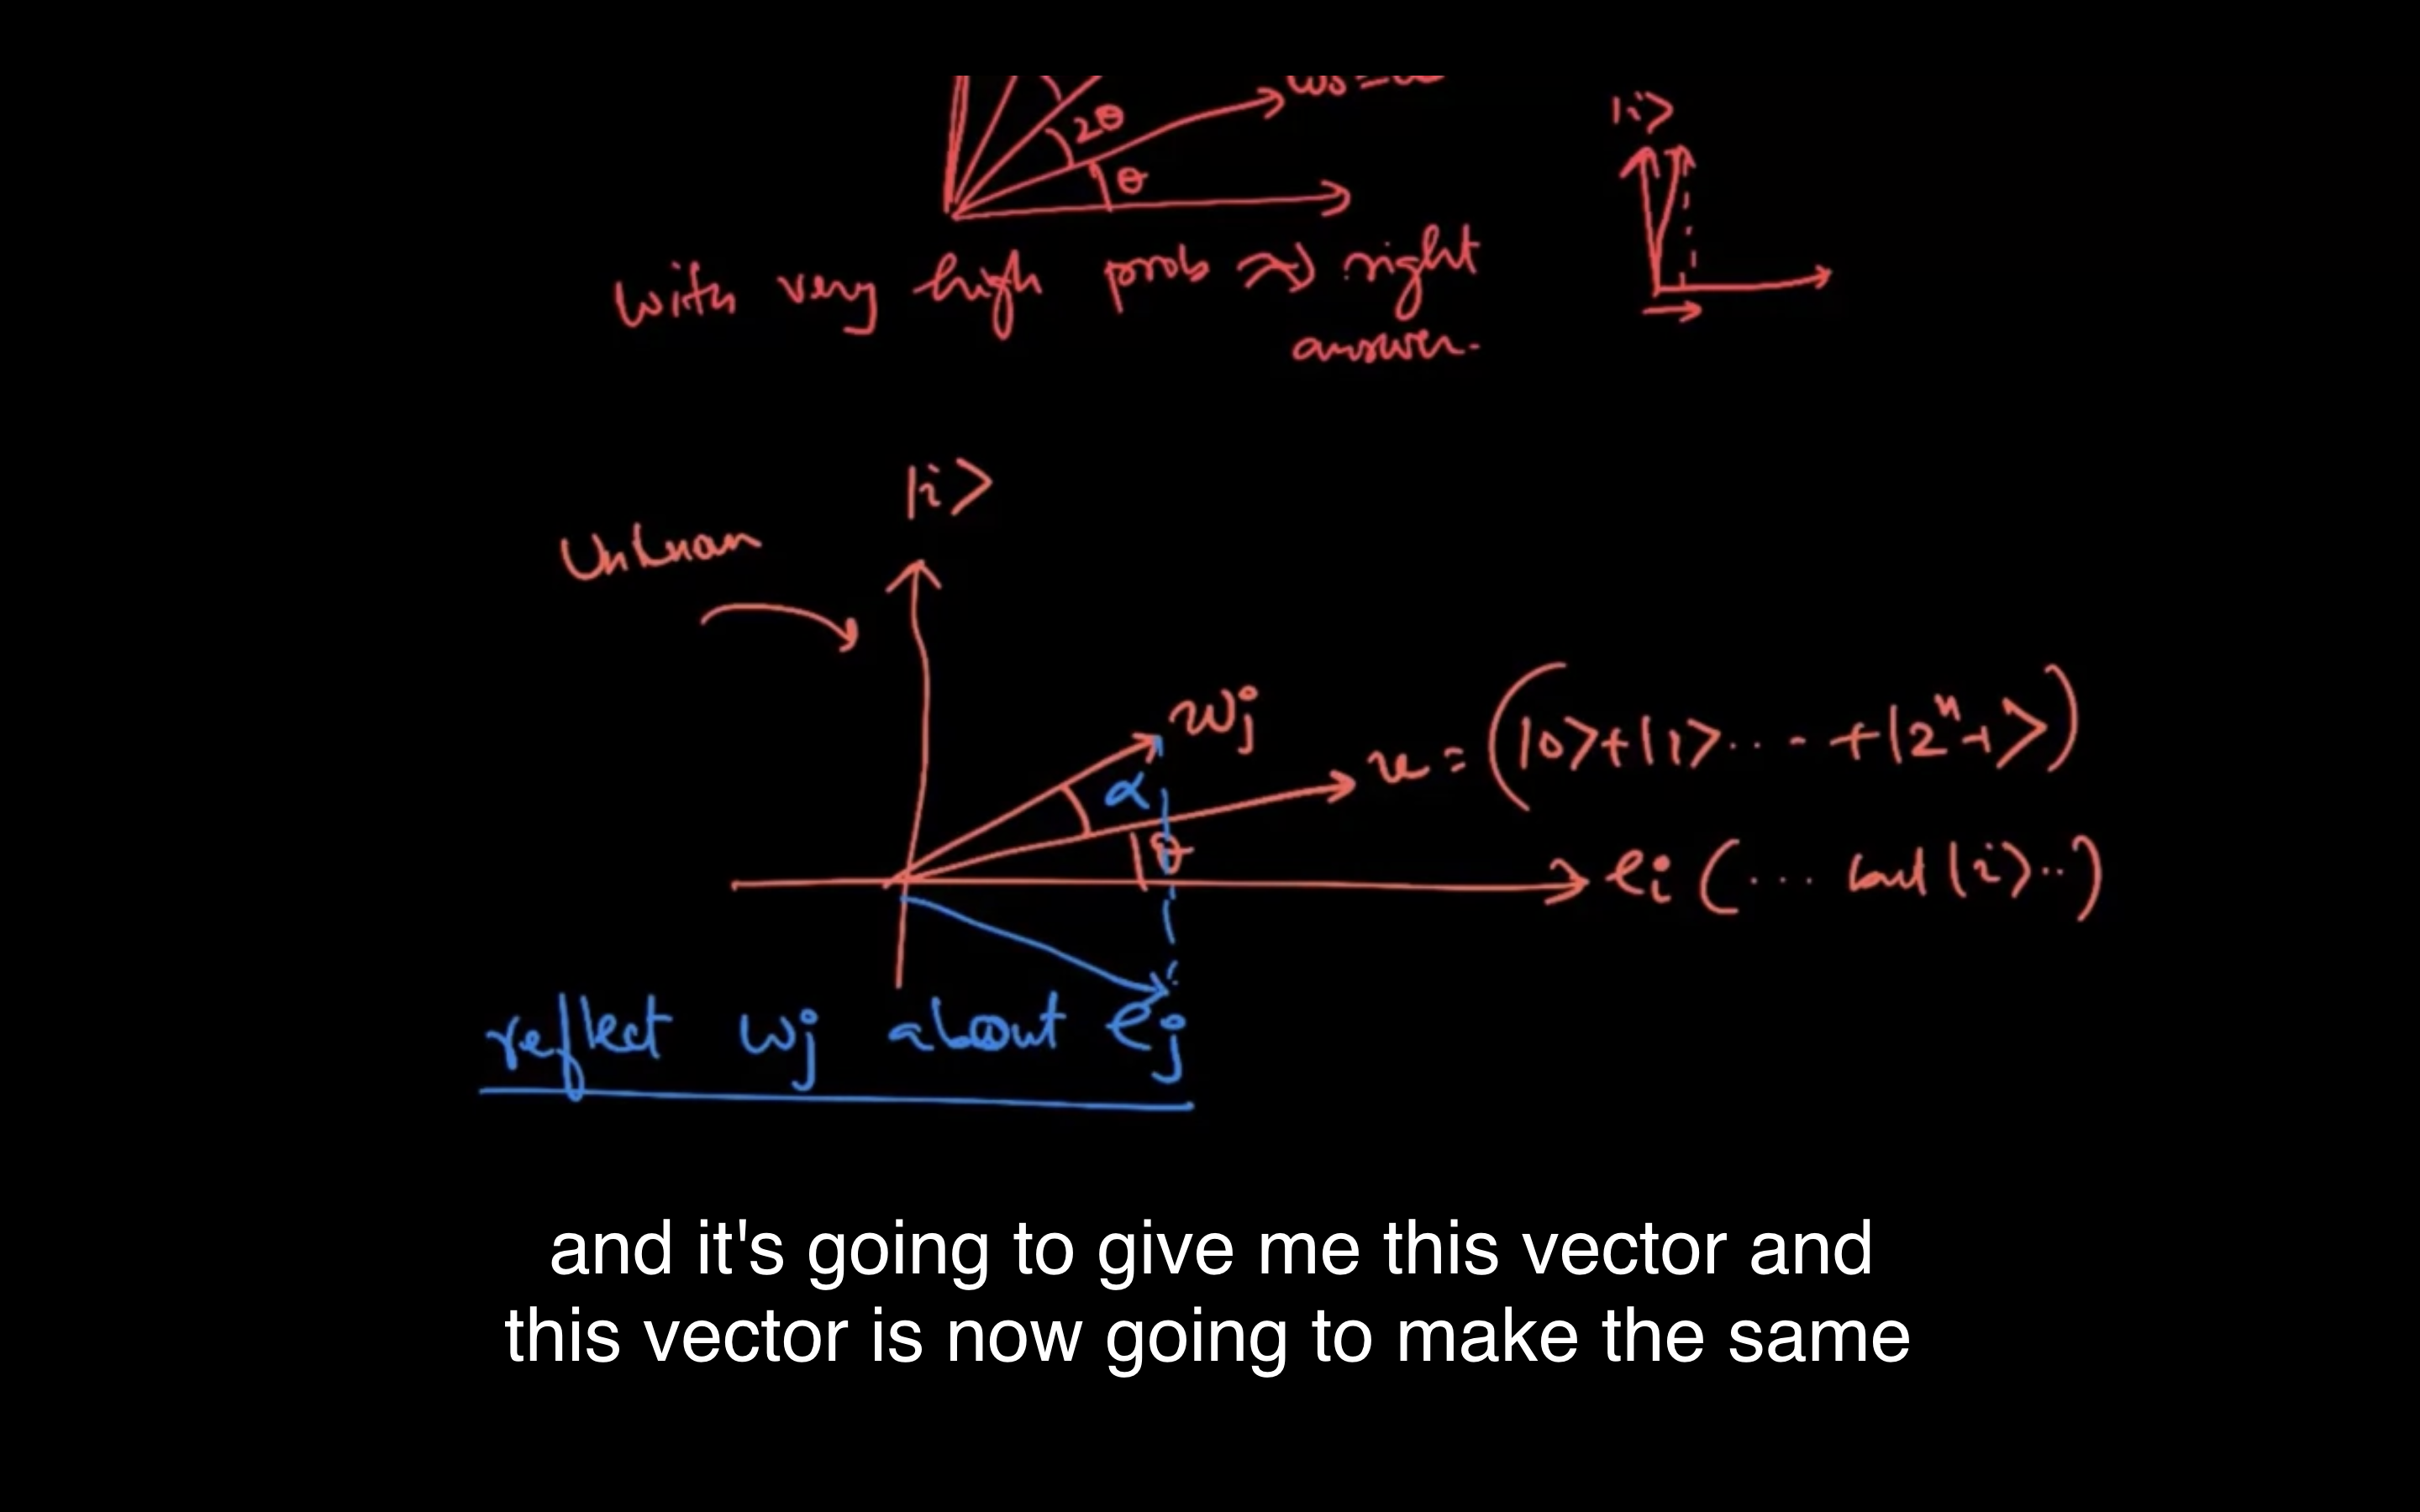 2θ
θ
|i>
with very high prob ⇒ right
answer.
|i>
Unknown
wj
α
u = (|0>+|1>... - +|2^n-1>)
θ
ei (... but |i>..)
reflect wj about ej
and it's going to give me this vector and
this vector is now going to make the same